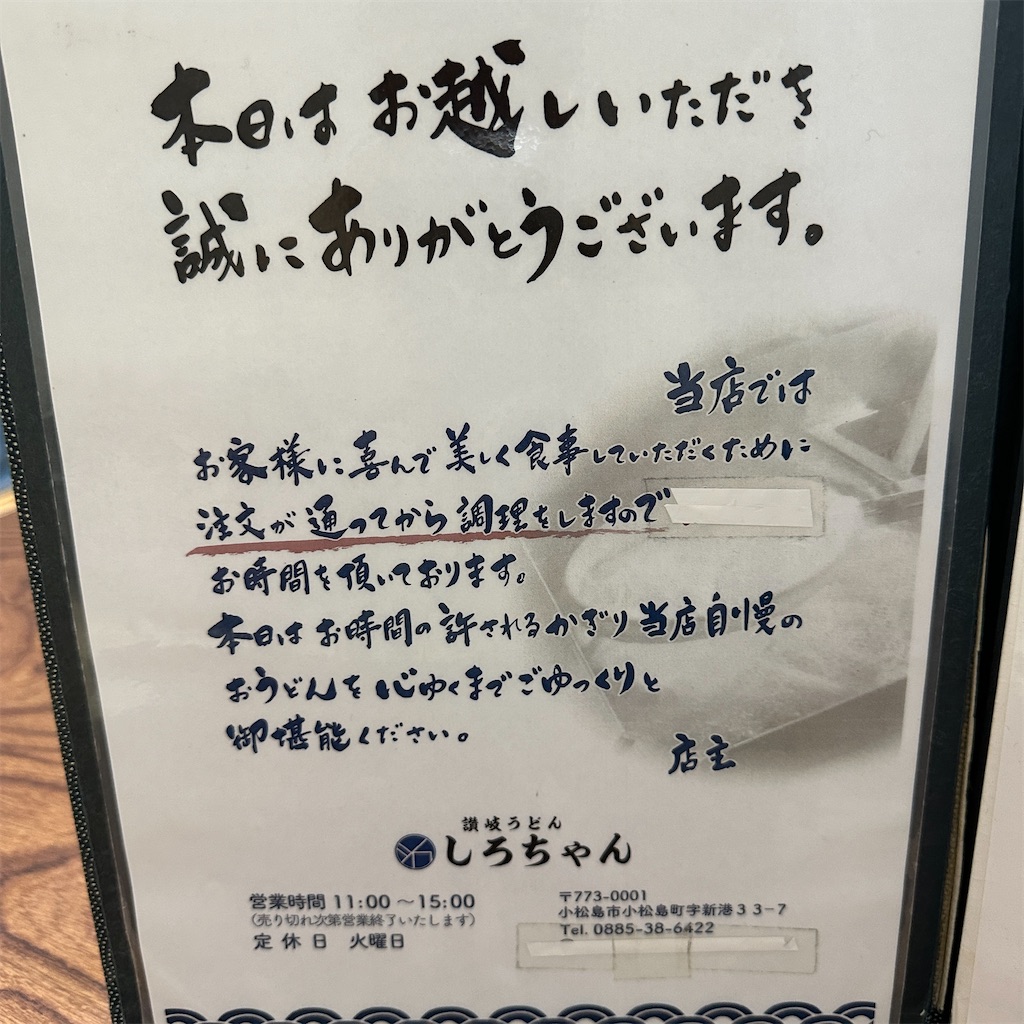 本日はお越しいただき
誠にありがとうございます。
当店では
お客様に喜んで美しく食事していただくために
注文が通ってから調理をしますので
お時間を頂いております。
本日はお時間の許されるかぎり当店自慢の
おうどんを心ゆくまでごゆっくりと
御堪能ください。
店主
讃岐うどん
しろちゃん
営業時間 11:00 ～15:00
(売り切れ次第営業終了いたします)
定休日 火曜日
〒773-0001
小松島市小松島町字新港33-7
Tel. 0885-38-6422